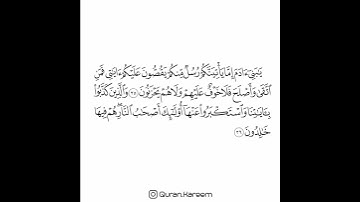 يَٰبَنِىٓ ءَادَمَ إِمَّا يَأْتِيَنَّكُمْ رُسُلٌ مِّنكُمْ يَقُصُّونَ عَلَيْكُمْ ءَايَٰتِى فَمَنِ
ٱتَّقَىٰ وَأَصْلَحَ فَلَا خَوْفٌ عَلَيْهِمْ وَلَا هُمْ يَحْزَنُونَ ٣٥ وَٱلَّذِينَ كَذَّبُوا۟
بِـَٔايَٰتِنَا وَٱسْتَكْبَرُوا۟ عَنْهَآ أُو۟لَٰٓئِكَ أَصْحَٰبُ ٱلنَّارِ هُمْ فِيهَا
خَٰلِدُونَ ٣٦
Quran.Kareem